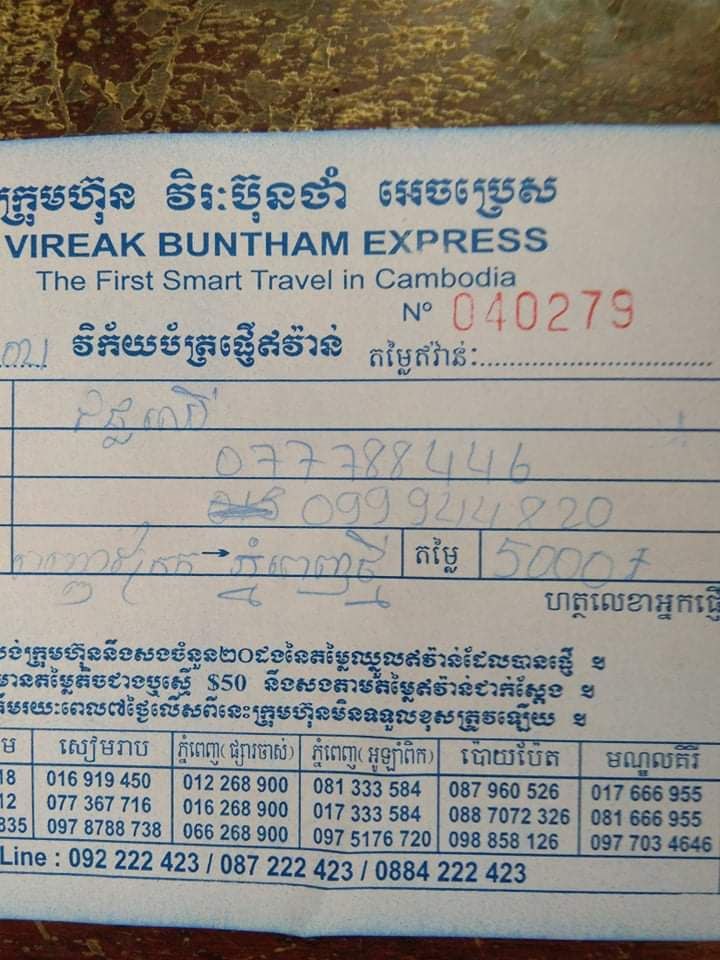 ក្រុមហ៊ុន វិរៈប៊ុនថាំ អេចប្រេស
VIREAK BUNTHAM EXPRESS
The First Smart Travel in Cambodia
Nº 040279
វិក័យប័ត្រផ្ញើឥវ៉ាន់ តម្លៃឥវ៉ាន់:
077788446
099944820
→ ភ្នំពេញថ្មី តម្លៃ 5000៛
ហត្ថលេខាអ្នកផ្ញើ
ក្រុមហ៊ុននឹងសងចំនួន២០ដងនៃតម្លៃឈ្នួលឥវ៉ាន់ដែលបានផ្ញើ ។
មានតម្លៃតិចជាងឬស្មើ $50 នឹងសងតាមតម្លៃឥវ៉ាន់ជាក់ស្តែង ។
រយៈពេល៧ថ្ងៃលើសពីនេះក្រុមហ៊ុនមិនទទួលខុសត្រូវឡើយ ។
ម សៀមរាប ភ្នំពេញ(ផ្សារចាស់) ភ្នំពេញ(អូឡាំពិក) ប៉ោយប៉ែត មណ្ឌលគិរី
18 016 919 450 012 268 900 081 333 584 087 960 526 017 666 955
12 077 367 716 016 268 900 017 333 584 088 7072 326 081 666 955
835 097 8788 738 066 268 900 097 5176 720 098 858 126 097 703 4646
Line : 092 222 423 / 087 222 423 / 0884 222 423